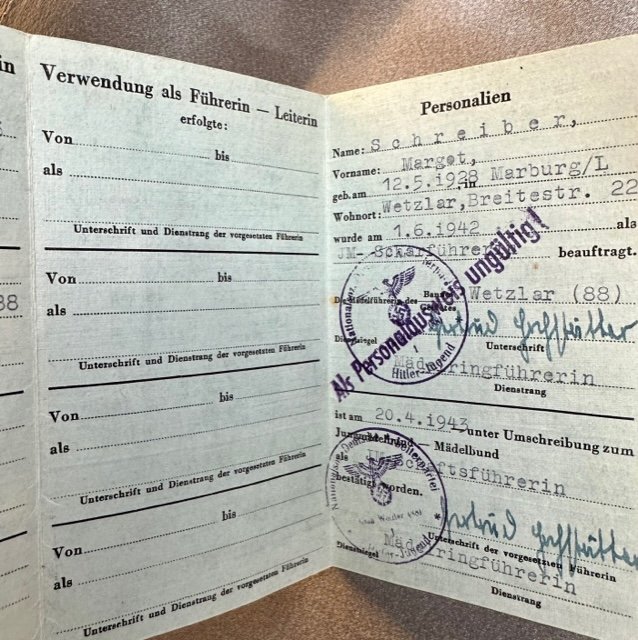 in
88
Verwendung als Führerin — Leiterin
erfolgte:
Von bis
als
Unterschrift und Dienstrang der vorgesetzten Führerin
Von bis
als
Unterschrift und Dienstrang der vorgesetzten Führerin
Von bis
als
Unterschrift und Dienstrang der vorgesetzten Führerin
Von bis
als
Unterschrift und Dienstrang der vorgesetzten Führerin
Personalien
Name: Schreiber,
Vorname: Margot,
geb.am 12.5.1928 in Marburg/L
Wohnort: Wetzlar,Breitestr. 22
wurde am 1.6.1942 als
JM- Scharführerin beauftragt.
Die Mädelführerin des Wetzlar (88)
Als Personalausweis ungültig!
Hitler-Jugend
Unterschrift
Mädelringführerin
Dienstrang
ist am 20.4.1943 unter Umschreibung zum
Mädelbund
als
bestätigt worden.
Unterschrift der vorgesetzten Führerin
Dienstsiegel
Mädelringführerin
Dienstrang